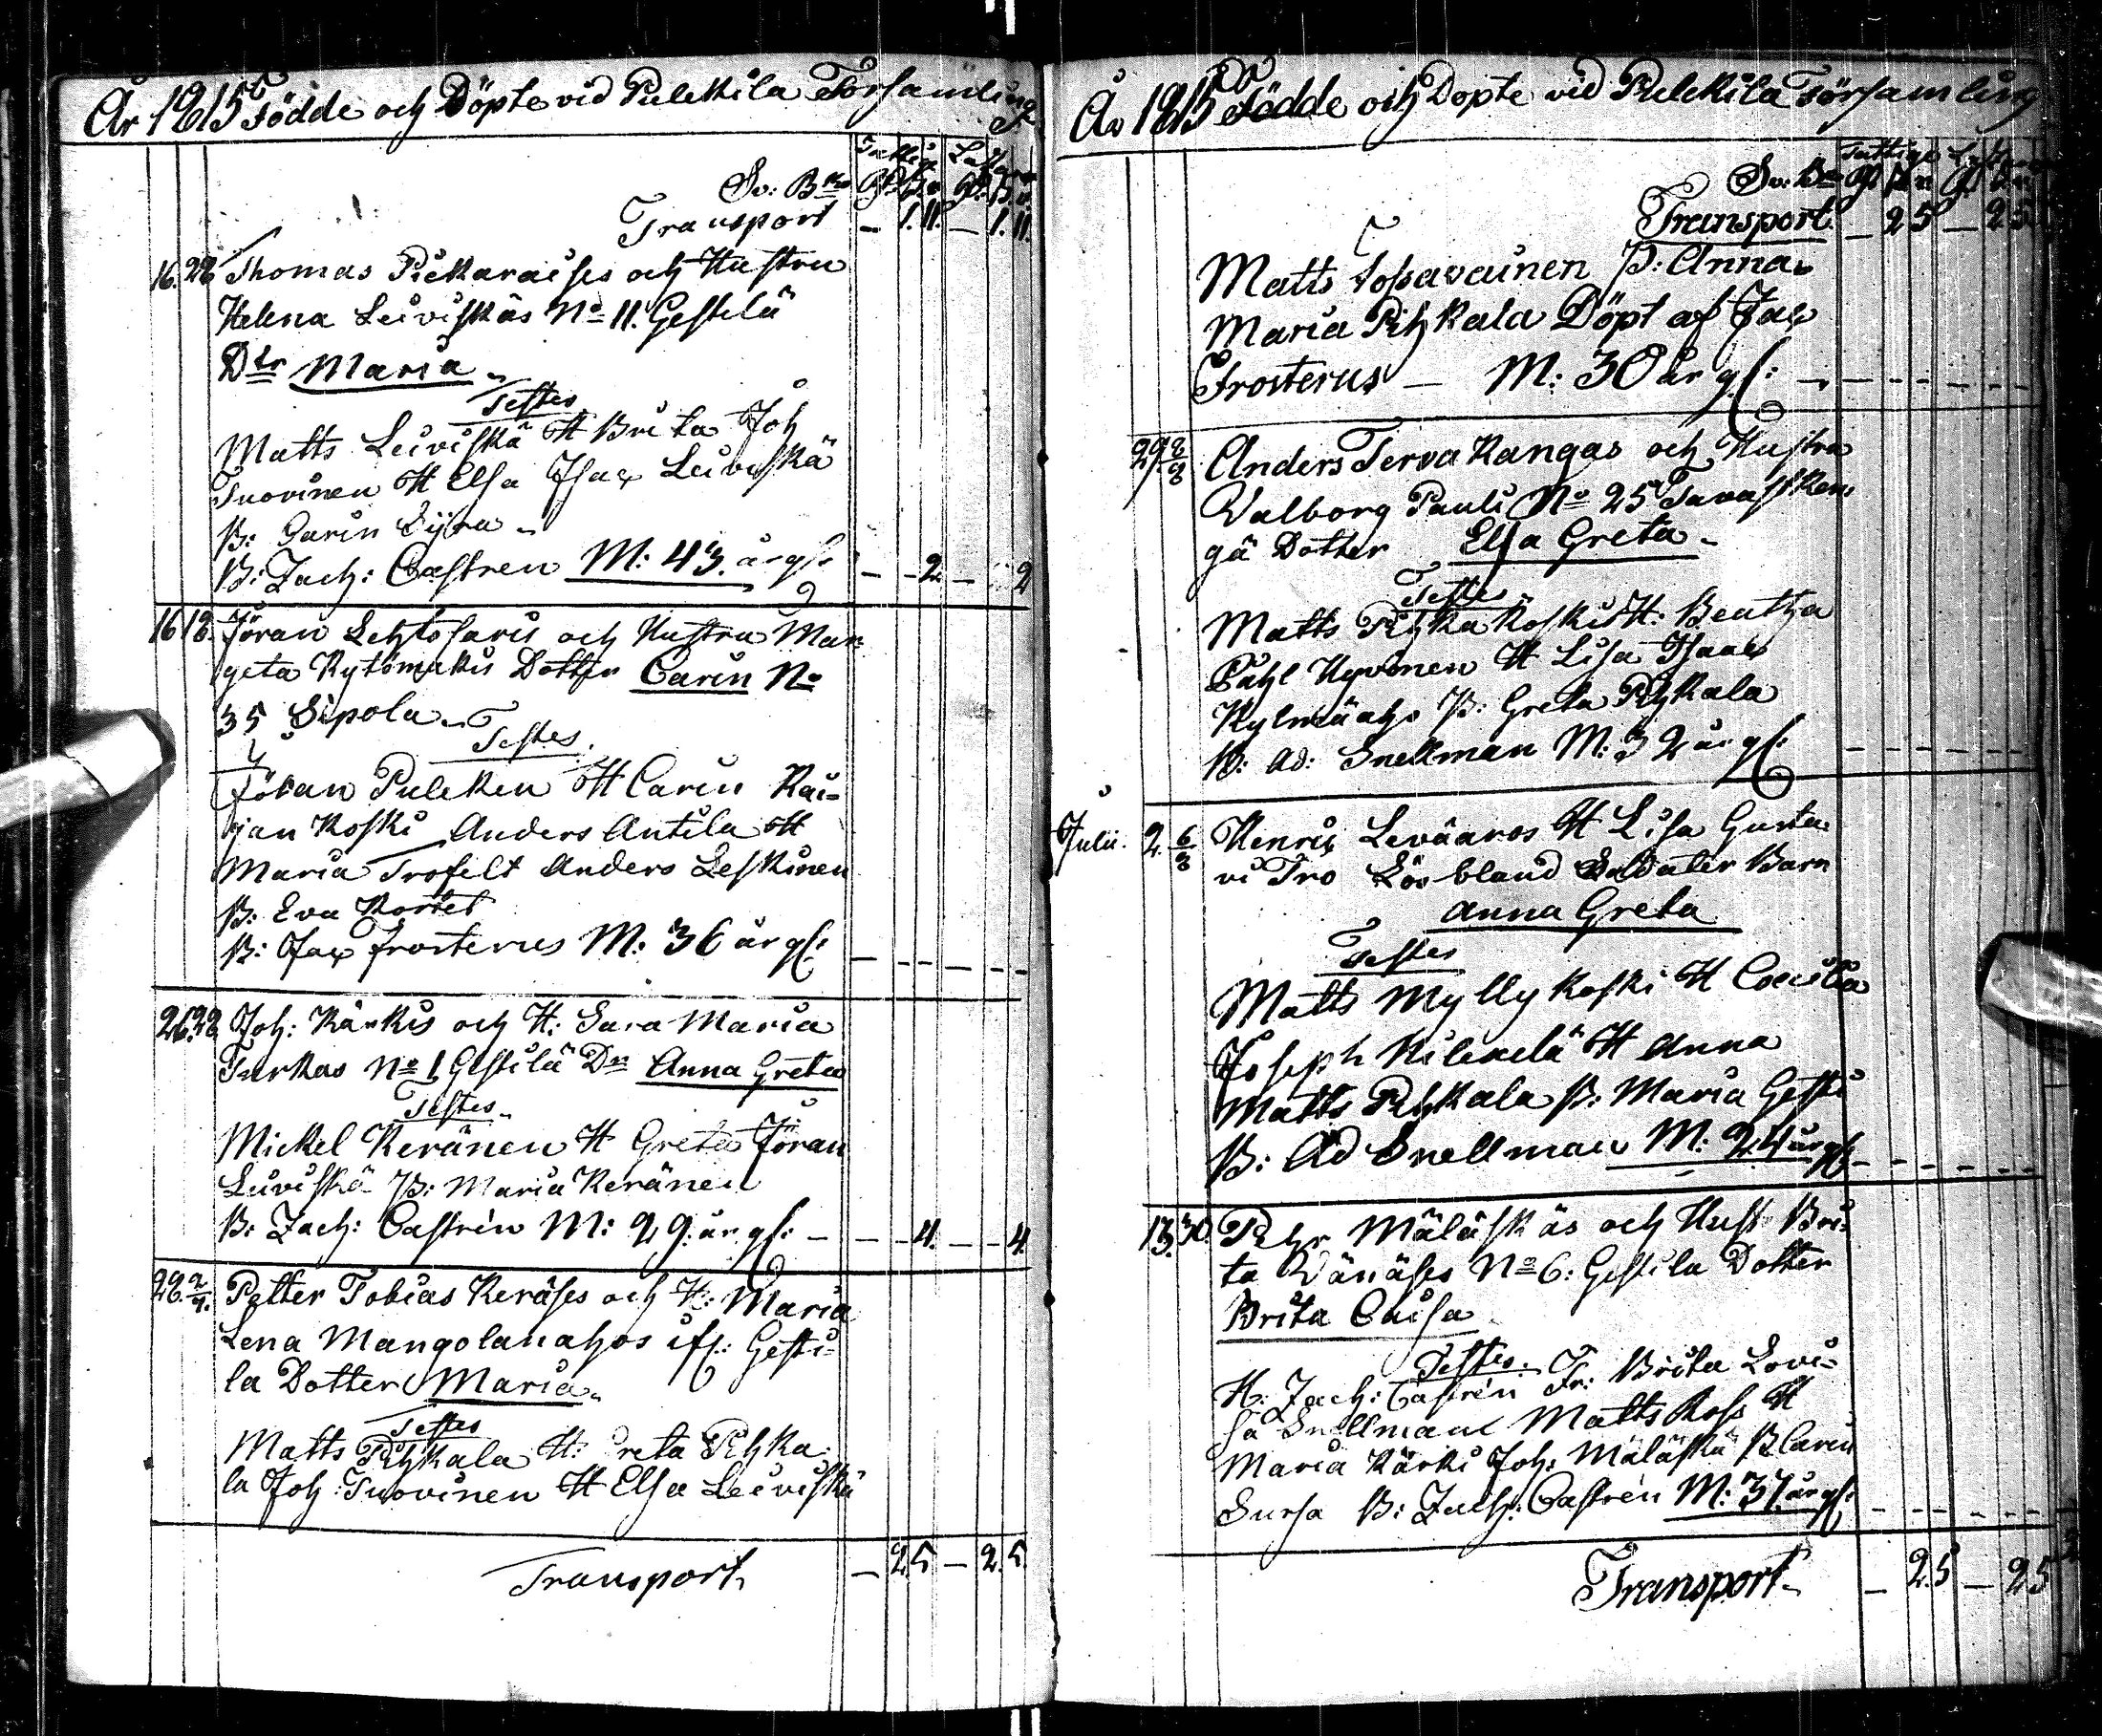 År 1815 Födde och Döpte vid Pulckila Församling
Fattige
Sv: Bko
Transport — 1.11. — 1.11.
16. 28 Thomas Pickaraises och Hustru
Helena Leiviskäs No 11. Gestilä
Dtr Maria
Testes
Matts Leiviskä H Brita Joh
Tuovinen H Elsa Isac Leiviskä
P: Carin
B: Zach: Castren M: 43. år gl: — - 2 — 2
16 18. Jöran Lehtosaris och Hustru Mar-
geta Kytömäkis Dotter Carin No
35 Sipola
Testes.
Jöran Pulckin H Carin Kai-
jan Koski Anders Antila H
Maria Trofelt Anders Leskinen
P: Eva Kortet
B: Jac Frosterus M: 36 år gl:
26. 28. Joh: Kärkis och H: Sara Maria
Turkas No 1 Gestilä Dr Anna Greta
Testes
Mickel Keränen H Greta Jöran
Leiviskä P: Maria Keränen
B: Zach: Castrén M: 29. år gl: — — - 4. — - 4.
28. 2/7. Petter Tobias Keräses och H: Maria
Lena Mangolanahos if: Gesti-
la Dotter Maria
Testes
Matts Pihkala H: Greta Pihka-
la Joh: Tuovinen H Elsa Leiviskä
Transport — 2.5 — 2.5.
År 1815 Födde och Döpte vid Pulckila Församling
Fattige
Sv: Bko
Transport. — 25 — 25
Matts P: Anna
Maria Pihkala Döpt af Jac
Frosterus — M: 30 år gl:
29. 8/8 Anders Tervakangas och Hustru
Valborg Pauli No 25 Tavastken-
gä Dotter Elsa Greta
Testes
Matts Pihkakoski H: Beatha
Påhl Hyvönen H Lisa Isaac
Kylmäaho P: Greta Pihkala
B: Ad: Snellman M: 32 år gl:
Julii. 2. 6/8 Henric Leväaros H Lisa Gusta-
vi Tro Soldater Barn
Anna Greta
Testes
Matts Myllykoski H Coecilia
Joseph H Anna
Matts Pihkala P: Maria Gesti
B: Ad Snellman M: 24 år gl:
13. 30. Pehr Mäläskäs och Hust Bri-
ta Wänäses No 6: Gestila Dotter
Brita Caisa
Testes.
H: Zach: Castrén Fr: Brita Lovi-
sa Snellman Matts Koss H
Maria Kärki Joh: Mäläskä P Carin
Sursa B: Zach: Castrén M: 37 år gl:
Transport — 2.5 — 25